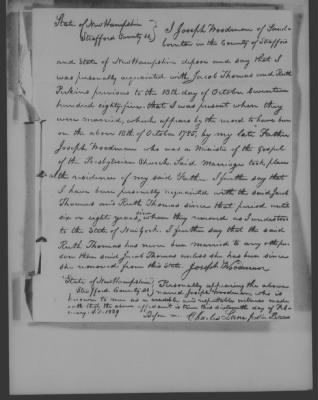 State of New Hampshire
Strafford County SS
I Joseph Woodman of Sanb-
bornton in the County of Strafford
and State of New Hampshire depose and say that I
was personally acquainted with Jacob Thomas and Ruth
Perkins previous to the 13th day of October Seventeen
hundred eighty five. that I was present when they
were married, which appears by the record to have been
on the above 13th of October 1785, by my late Father
Joseph Woodman who was a Minister of the gospel
of the Presbyterian Church Said Marriage took place
at the residence of my said Father I further say that
I have been personally acquainted with the said Jacob
Thomas and Ruth Thomas since that period until
six or eight years since when they removed as I understood
to the State of New York. I further say that the said
Ruth Thomas has never been married to any other per-
son than said Jacob Thomas unless she has been since
she removed from this State Joseph Woodman
State of New Hampshire
Strafford County SS
Personally appearing the above
named Joseph Woodman who is
known to me as a credible and reputable witness made
oath that the above affidavit is true this sixteenth day of Feb-
ruary A.D. 1839
Before me Charles Lane Justice Peace